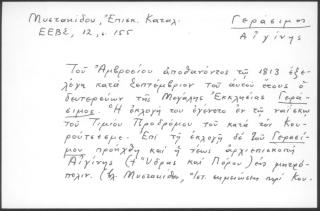 Μυστακίδου, Ἐπισκ. Κατάλ.
ΕΕΒΣ, 12, σ. 155
Γεράσιμος
Αἰγίνης
Τοῦ Ἀμβροσίου ἀποθανόντος τῷ 1813 ἐξε-
λέγη κατὰ Σεπτέμβριον τοῦ αὐτοῦ ἔτους ὁ
δευτερεύων τῆς Μεγάλης Ἐκκλησίας Γερά-
σιμος. Ἡ ἐκλογή του ἐγένετο ἐν τῷ ναΐσκῳ
τοῦ Τιμίου Προδρόμου τοῦ κατὰ τὸν Κου-
ρούτσεσμε. Ἐπὶ τῇ ἐκλογῇ δὲ τοῦ Γερασί-
μου προήχθη καὶ ἡ τέως ἀρχιεπισκοπὴ
Αἰγίνης (+ Ὕδρας καὶ Πόρου) εἰς μητρό-
πολιν. (βλ. Μυστακίδου, Ἱστ. σημειώσεις περὶ Κου-